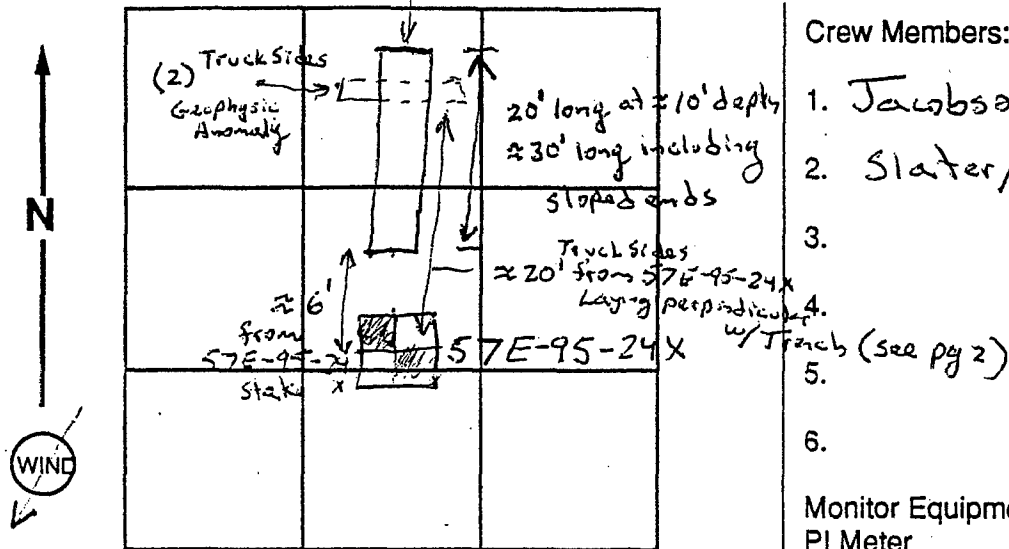 (2) Truck Sides
Geophysic
Anomaly
20' long at ≈ 10' depth
≈ 30' long including
sloped ends
Truck Sides
≈ 20' from 57E-95-24X
Laying perpendicular
w/ Trench (see pg 2)
≈ 6'
from
57E-95-24
x
Stake
57E-95-24X
N
WIND
Crew Members:
1. Jacobs
2. Slater/
3.
4.
5.
6.
Monitor Equipme
PI Meter